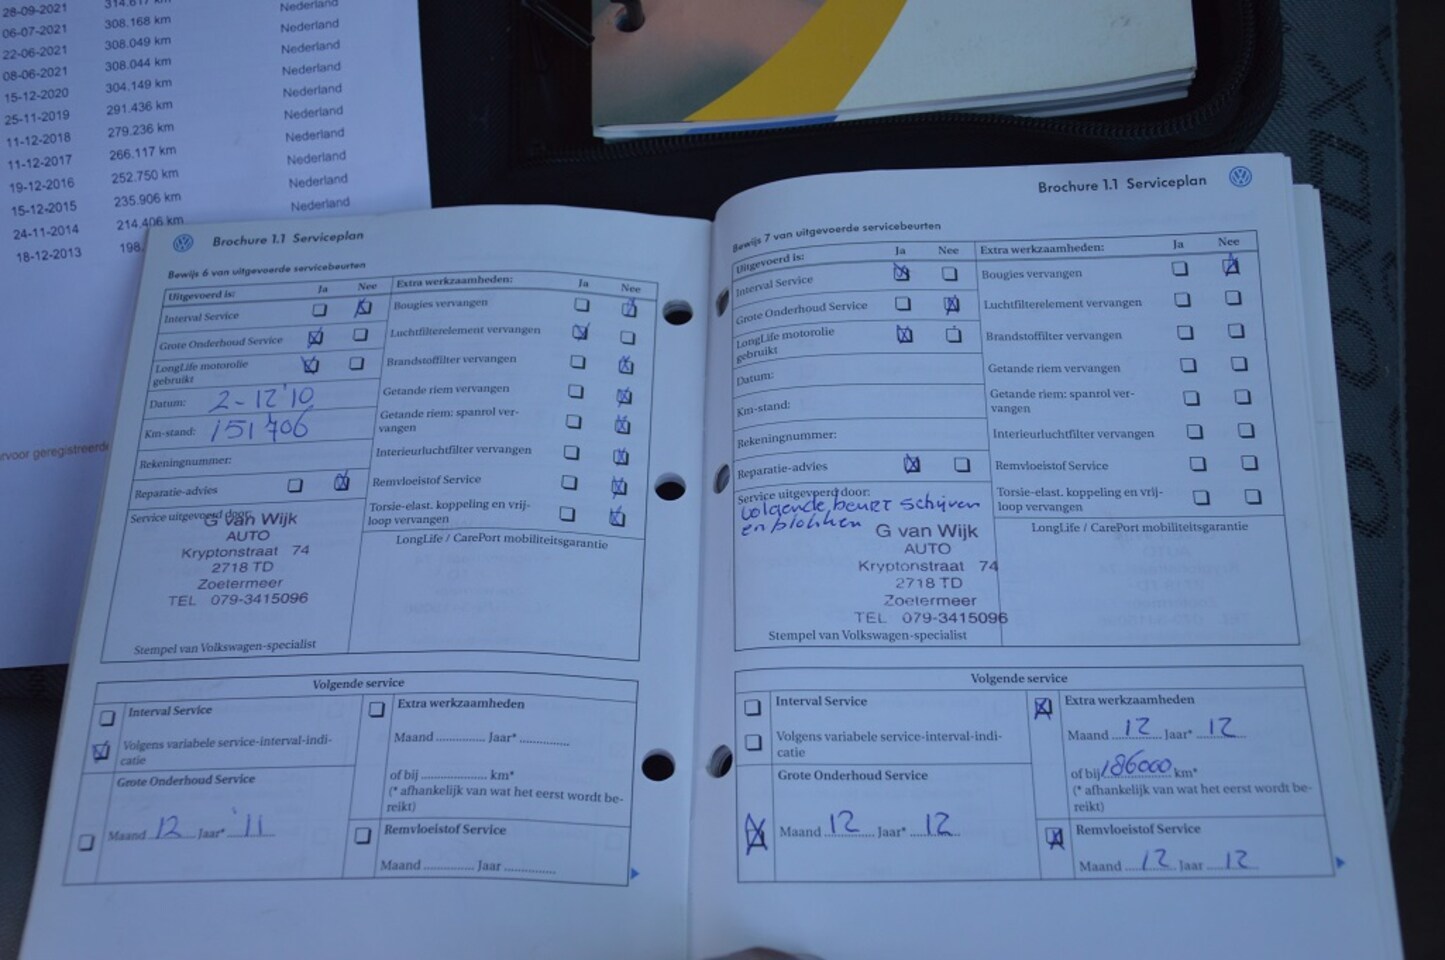 28-09-2021 314.617 km Nederland
06-07-2021 308.168 km Nederland
22-06-2021 308.049 km Nederland
08-06-2021 308.044 km Nederland
15-12-2020 304.149 km Nederland
25-11-2019 291.436 km Nederland
11-12-2018 279.236 km Nederland
11-12-2017 266.117 km Nederland
19-12-2016 252.750 km Nederland
15-12-2015 235.906 km Nederland
24-11-2014 214.406 km
18-12-2013 198.
Brochure 1.1 Serviceplan
Bewijs 6 van uitgevoerde servicebeurten
Uitgevoerd is: Ja Nee
Interval Service
Grote Onderhoud Service
LongLife motorolie
gebruikt
Datum: 2-12'10
Km-stand: 151706
Rekeningnummer:
Reparatie-advies
Service uitgevoerd door:
G van Wijk
AUTO
Kryptonstraat 74
2718 TD
Zoetermeer
TEL 079-3415096
Stempel van Volkswagen-specialist
Extra werkzaamheden: Ja Nee
Bougies vervangen
Luchtfilterelement vervangen
Brandstoffilter vervangen
Getande riem vervangen
Getande riem: spanrol ver-
vangen
Interieurluchtfilter vervangen
Remvloeistof Service
Torsie-elast. koppeling en vrij-
loop vervangen
LongLife / CarePort mobiliteitsgarantie
Volgende service
Interval Service
Volgens variabele service-interval-indi-
catie
Grote Onderhoud Service
Maand 12 Jaar* '11
Extra werkzaamheden
Maand .............. Jaar* ..............
of bij .................. km*
(* afhankelijk van wat het eerst wordt be-
reikt)
Remvloeistof Service
Maand .............. Jaar ..............
Brochure 1.1 Serviceplan
Bewijs 7 van uitgevoerde servicebeurten
Uitgevoerd is: Ja Nee
Interval Service
Grote Onderhoud Service
LongLife motorolie
gebruikt
Datum:
Km-stand:
Rekeningnummer:
Reparatie-advies
Service uitgevoerd door:
volgende beurt schijven
en blokken
G van Wijk
AUTO
Kryptonstraat 74
2718 TD
Zoetermeer
TEL 079-3415096
Stempel van Volkswagen-specialist
Extra werkzaamheden: Ja Nee
Bougies vervangen
Luchtfilterelement vervangen
Brandstoffilter vervangen
Getande riem vervangen
Getande riem: spanrol ver-
vangen
Interieurluchtfilter vervangen
Remvloeistof Service
Torsie-elast. koppeling en vrij-
loop vervangen
LongLife / CarePort mobiliteitsgarantie
Volgende service
Interval Service
Volgens variabele service-interval-indi-
catie
Grote Onderhoud Service
Maand 12 Jaar* 12
Extra werkzaamheden
Maand 12 Jaar* 12
of bij 186000 km*
(* afhankelijk van wat het eerst wordt be-
reikt)
Remvloeistof Service
Maand 12 Jaar 12